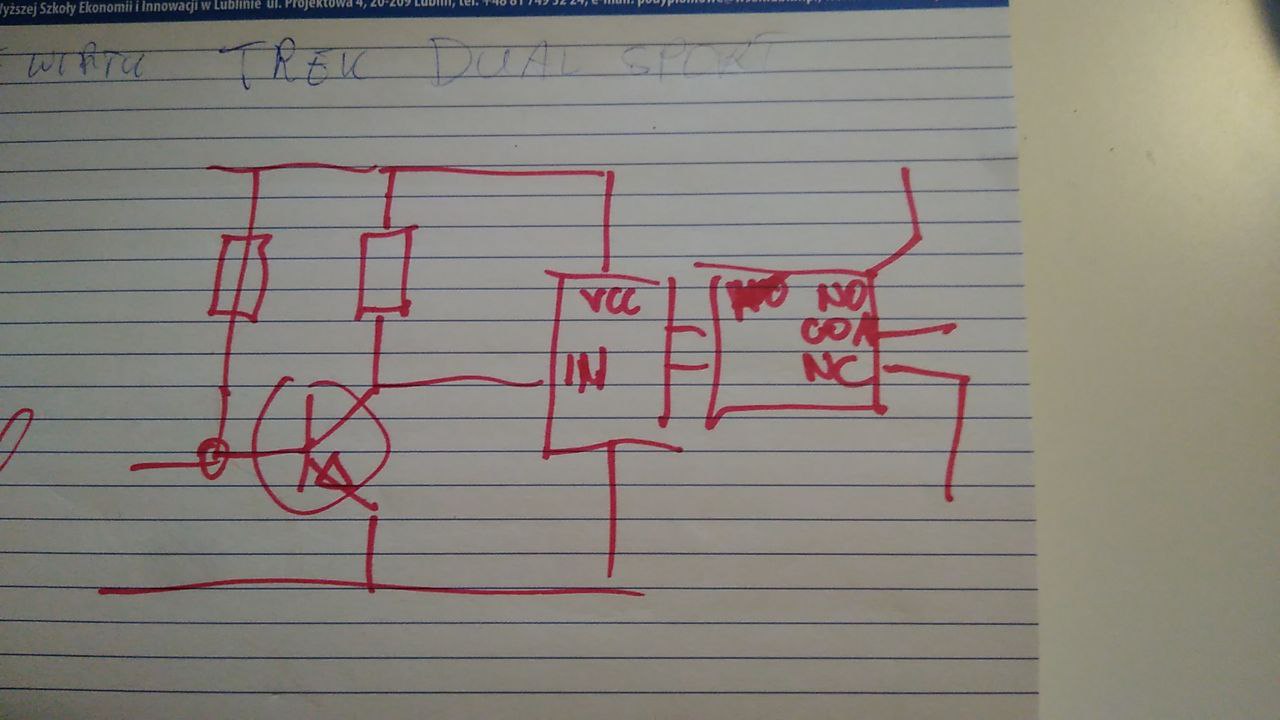 Wyższej Szkoły Ekonomii i Innowacji w Lublinie ul. Projektowa 4, 20-209 Lublin, tel. +48 81 749 32 24, e-mail:
TREK DUAL SPORT
VCC
IN
NO
COM
NC